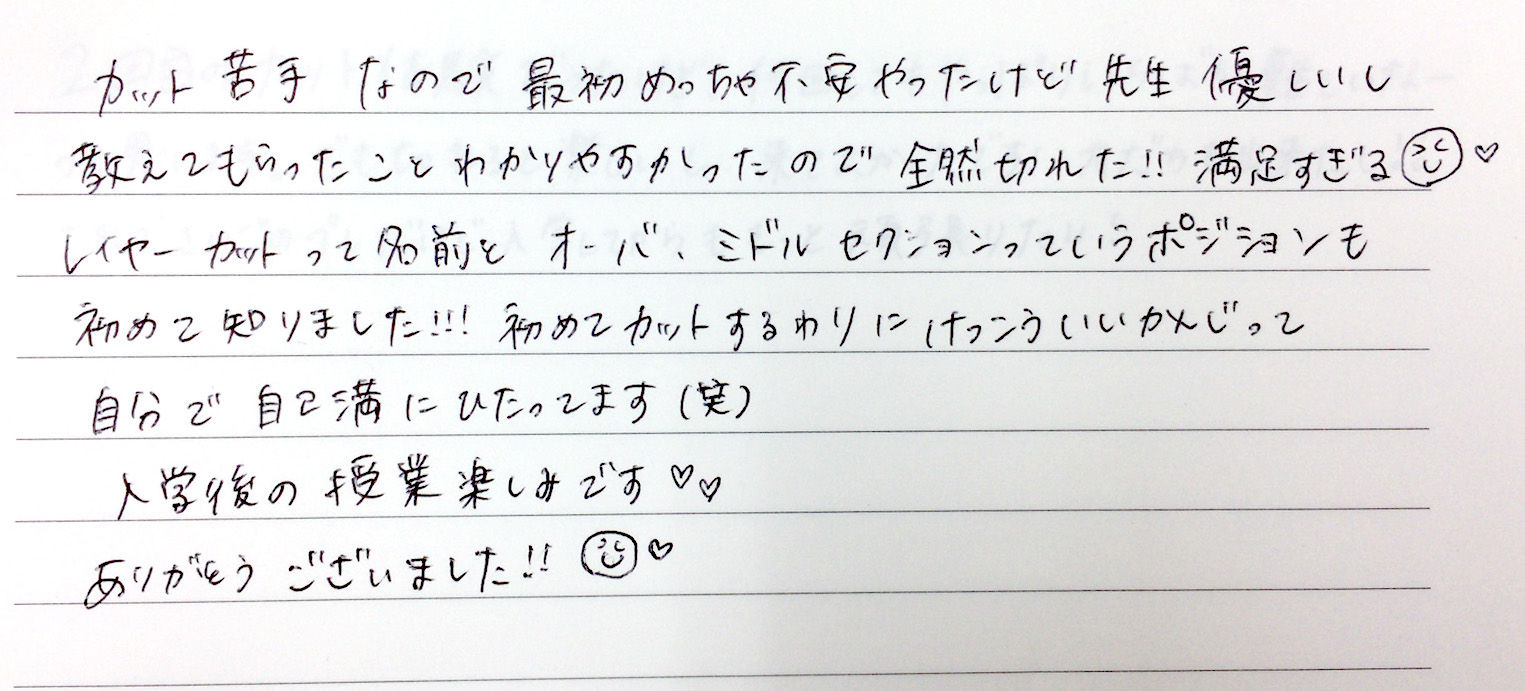 カット苦手なので最初めっちゃ不安やったけど先生優しいし
教えてもらったことわかりやすかったので全然切れた!!満足すぎる☺♡
レイヤーカットって名前とオーバ、ミドルセクションっていうポジションも
初めて知りました!!!初めてカットするわりにけっこういいかんじって
自分で自己満にひたってます(笑)
入学後の授業楽しみです♡♡
ありがとうございました!!☺♡